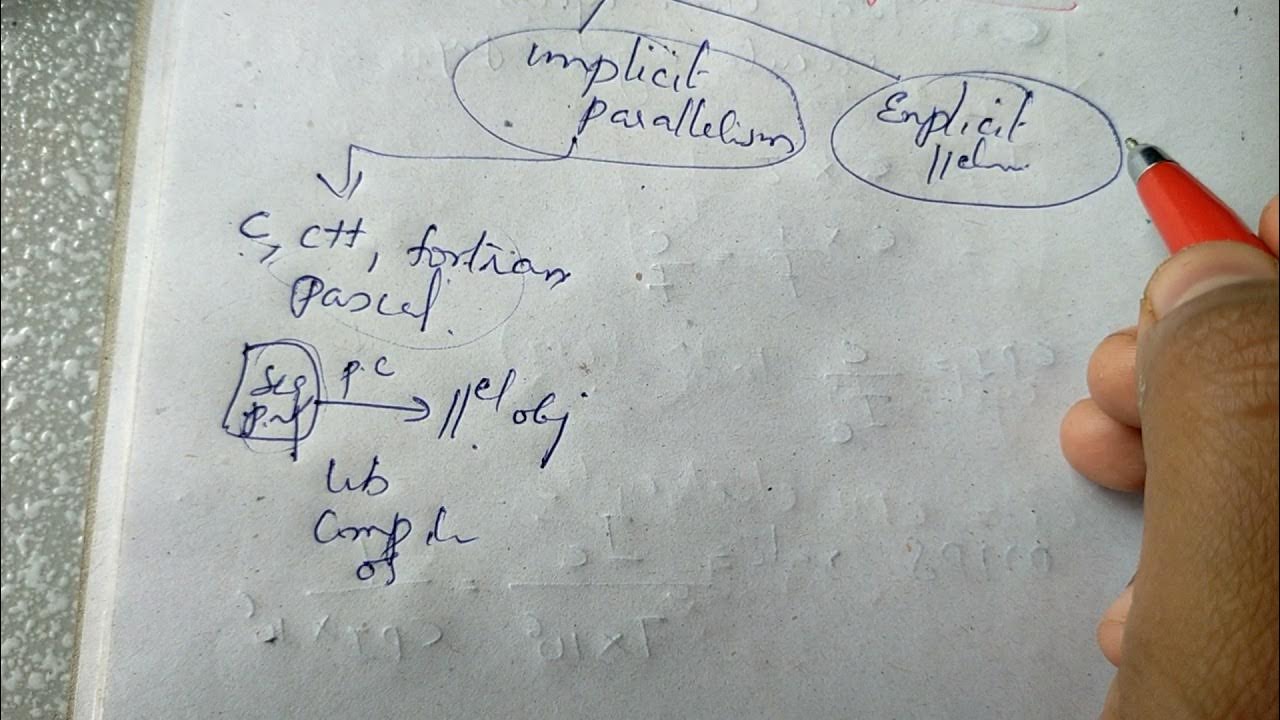 implicit
parallelism
Explicit
||elm
C, C++, fortran
Pascal.
Seq
p.c
||el obj
lib
Compile
os